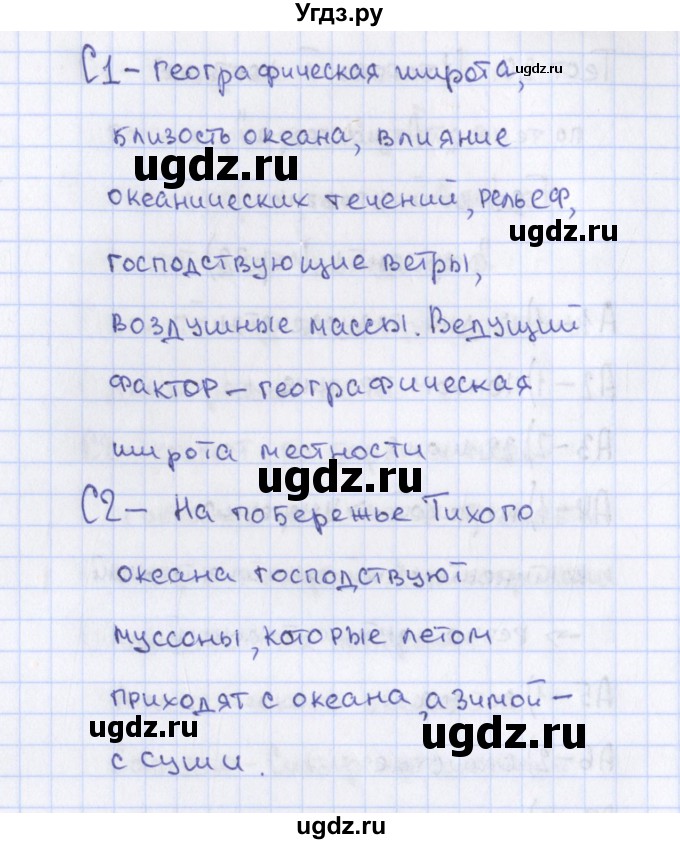 Угдз.ру
С1 – географическая широта,
ugdz.ru
близость океана, влияние
ugdz.ru
океанических течений, рельеф,
ugdz.ru
господствующие ветры,
воздушные массы. Ведущий
фактор – географическая
широта местности
ugdz.ru
С2 – На побережье Тихого
океана господствуют
муссоны, которые летом
приходят с океана, а зимой –
ugdz.ru
ugdz.ru
с суши.
ugdz.ru